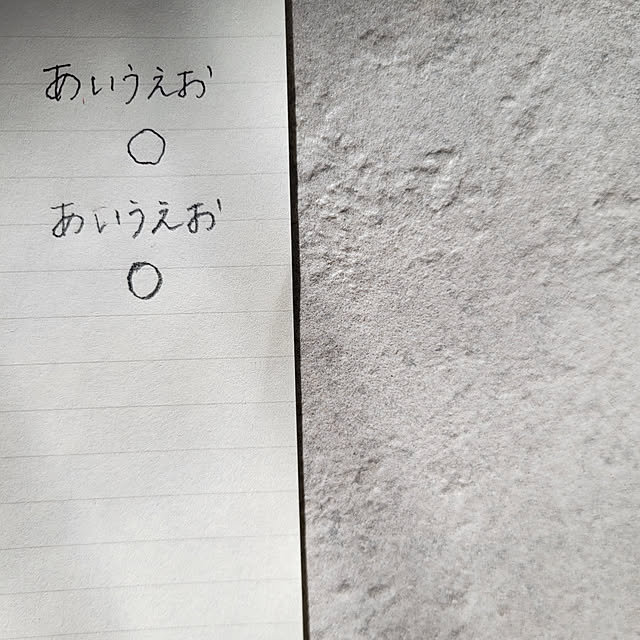 あいうえお
○
あいうえお
○